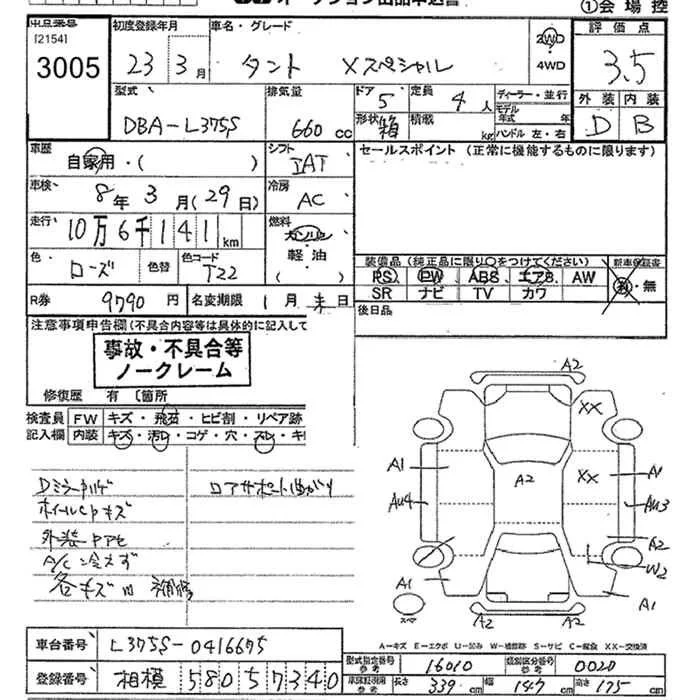 オークション出品申込書
①会場控
[2154]
3005
初度登録年月
23 3月
車名・グレード
タント Xスペシャル
2WD
4WD
評価点
3.5
外装 内装
D B
型式
DBA-L375S
排気量
660 cc
ドア
5
定員
4人
形状
箱
積載
kg
ディーラー・並行
モデル
年式 年
ハンドル 左・右
車歴
自家用・( )
シフト
IAT
セールスポイント (正常に機能するものに限ります)
車検
8年 3月 (29日)
冷房
AC
走行
10万6千141km
燃料
ガソリン
軽油
( )
色
ローズ
色替
色コード
T22
装備品(純正品に限り○をつけてください)
PS PW ABS エアB AW
SR ナビ TV カワ
新車保証書
有・無
R券 9790円
名変期限 1月末日
後日品
注意事項申告欄(不具合内容等は具体的に記入して
事故・不具合等
ノークレーム
修復歴 有 〔箇所
検査員
記入欄
FW キズ・飛石・ヒビ割・リペア跡
内装 キズ・汚レ・コゲ・穴・スレ・キ
Dミラーカバーキズ
ロアサポート曲がり
ホイールCPキズ
外装
A/C冷えず
各キズ凹補修
A2
XX
A1
A2
XX
A1
Au4
Au3
A2
W2
A1
A1
スペア
A2
A2
A-キズ E-エクボ U-凹み W-補修跡 S-サビ C-腐食 XX-交換済
車台番号 L375S-0416675
登録番号 相模 580 ラ 7340
型式指定番号
参考
16010
類別区分番号
参考
0020
車検証記載
参考
長さ 339cm 幅 147cm 高さ 175cm